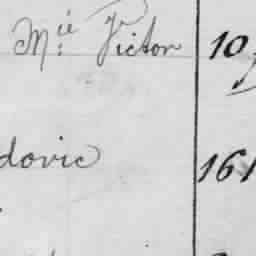 M.ié Victor 10
dovic 161